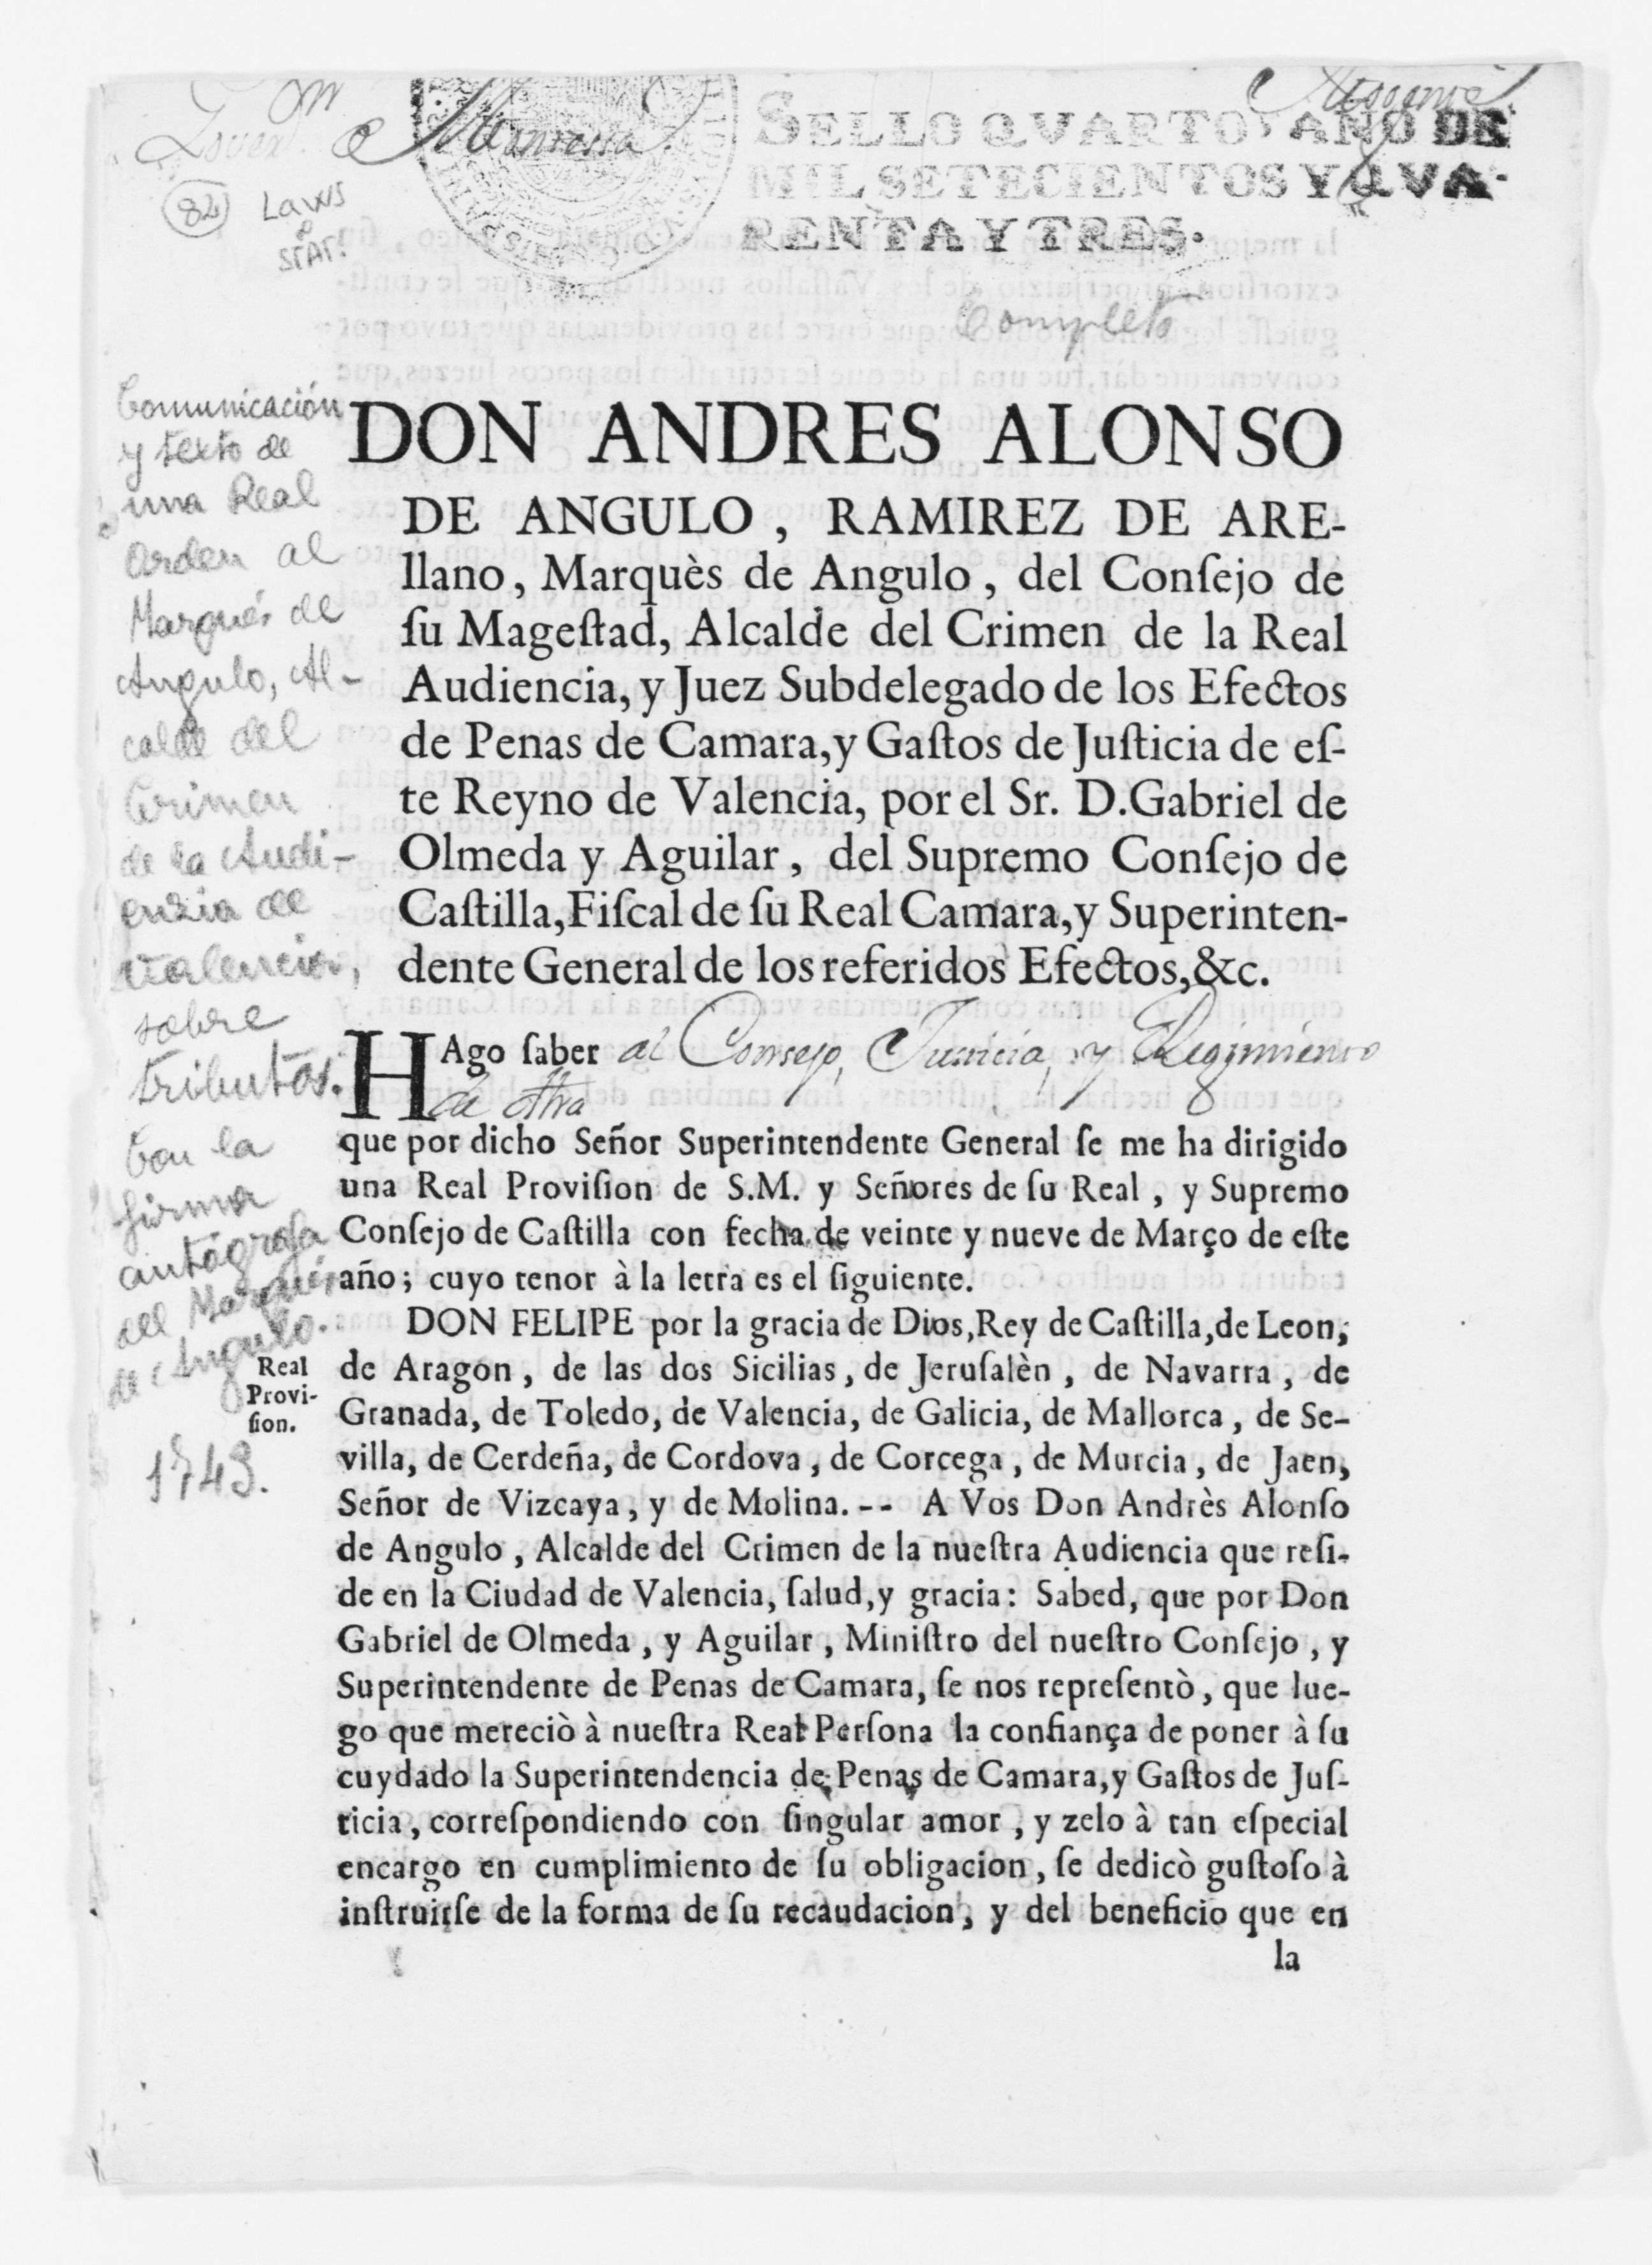 SELLO QVARTO, AÑO DE
MIL SETECIENTOS Y QVA-
RENTA Y TRES.
82
LAWS
STAT.
Completo
Comunicación
y texto de
una Real
Orden al
Marqués de
Angulo, Al-
calde del
Crimen
de la Audi-
enzia de
Valencia,
sobre
tributos.
Con la
firma
autógrafa
del Marqués
de Angulo.
1743.
DON ANDRES ALONSO
DE ANGULO, RAMIREZ DE ARE-
llano, Marquès de Angulo, del Conſejo de
ſu Mageſtad, Alcalde del Crimen de la Real
Audiencia, y Juez Subdelegado de los Efectos
de Penas de Camara, y Gaſtos de Juſticia de eſ-
te Reyno de Valencia, por el Sr. D. Gabriel de
Olmeda y Aguilar, del Supremo Conſejo de
Caſtilla, Fiſcal de ſu Real Camara, y Superinten-
dente General de los referidos Efectos, &c.
HAgo ſaber al Consejo, Justicia, y Regimiento
de otra
que por dicho Señor Superintendente General ſe me ha dirigido
una Real Proviſion de S.M. y Señores de ſu Real, y Supremo
Conſejo de Caſtilla con fecha de veinte y nueve de Março de eſte
año; cuyo tenor à la letra es el ſiguiente.
Real
Provi-
ſion.
DON FELIPE por la gracia de Dios, Rey de Caſtilla, de Leon,
de Aragon, de las dos Sicilias, de Jeruſalèn, de Navarra, de
Granada, de Toledo, de Valencia, de Galicia, de Mallorca, de Se-
villa, de Cerdeña, de Cordova, de Corcega, de Murcia, de Jaen,
Señor de Vizcaya, y de Molina. -- A Vos Don Andrès Alonſo
de Angulo, Alcalde del Crimen de la nueſtra Audiencia que reſi-
de en la Ciudad de Valencia, ſalud, y gracia: Sabed, que por Don
Gabriel de Olmeda, y Aguilar, Miniſtro del nueſtro Conſejo, y
Superintendente de Penas de Camara, ſe nos repreſentò, que lue-
go que mereciò à nueſtra Real Perſona la confiança de poner à ſu
cuydado la Superintendencia de Penas de Camara, y Gaſtos de Juſ-
ticia, correſpondiendo con ſingular amor, y zelo à tan eſpecial
encargo en cumplimiento de ſu obligacion, ſe dedicò guſtoſo à
inſtruirſe de la forma de ſu recaudacion, y del beneficio que en
la